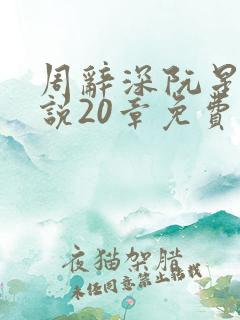 周辭深阮星
說20章免費
夜猫架腊
未经同意禁止转载